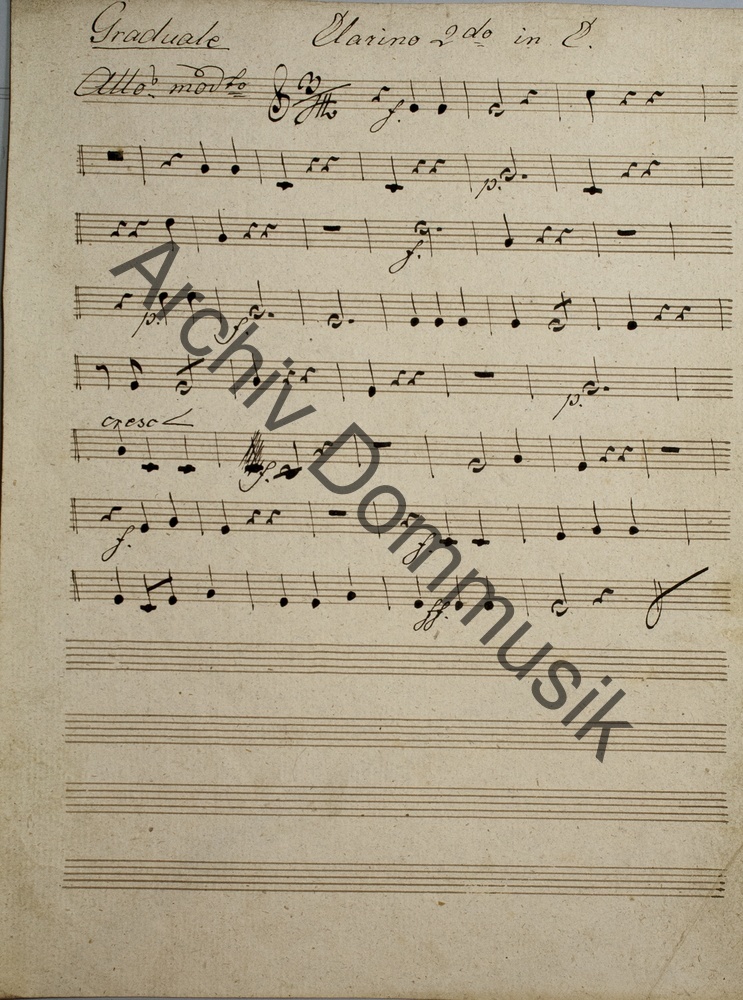 Graduale Clarino 2do in C.
Allo modto
f.
p.
f.
p. f.
p.
cresc
f.
f. f.
ff.
Archiv Dommusik